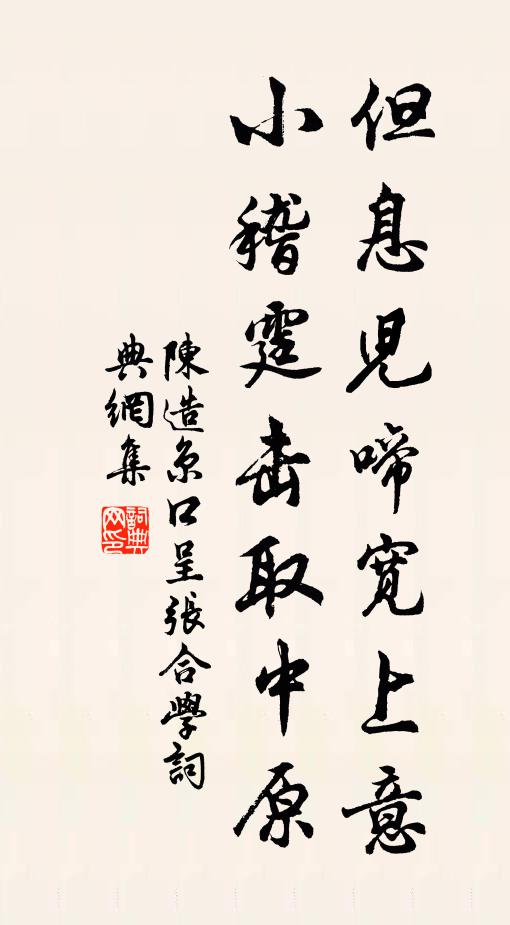 但息児啼寬上意
小稽霆击取中原
陳造京口呈張合學詞
典網集
詞典
网印